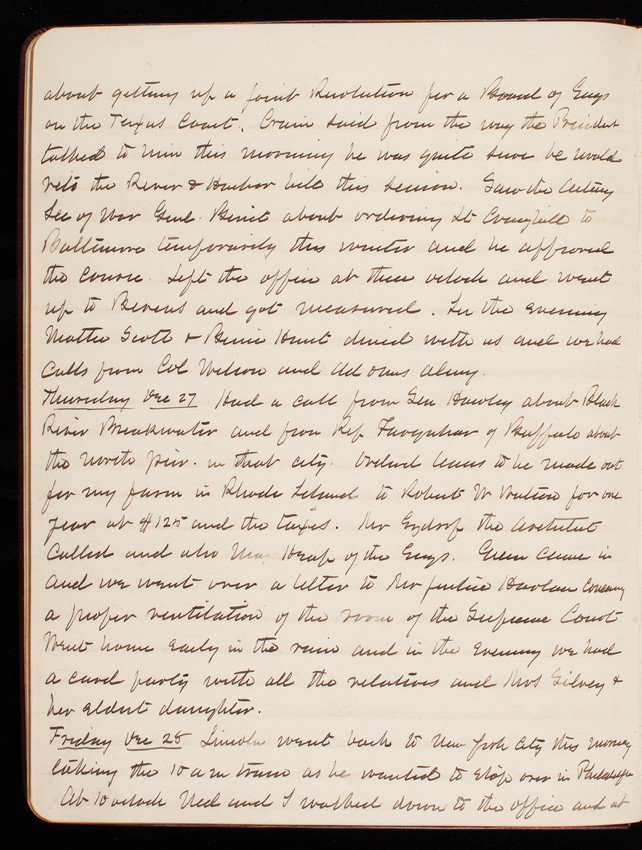 about getting up a joint Resolution for a Board of Engs
on the Texas Coast. Crain said from the way the President
talked to him this morning he was quite sure he would
veto the River & Harbor bill this session. Saw the Acting
Sec of War Genl Benet about ordering Lt Craighill to
Baltimore temporarily this winter and he approved
the course. Left the office at three oclock and went
up to and got measured. In the evening
Mattie Scott & Hunt dined with us and we had
calls from Col Wilson and
Thursday Dec 27 Had a call from Gen Hawley about Black
River Breakwater and from Rep Farquhar of Buffalo about
the north pier in that city. Ordered leases to be made out
for my farm in Rhode Island to Robert W Watson for one
year at $125 and the taxes. Mr the
called and also Maj Heap of the Engs. Green came in
and we went over a letter to Mr Justice Harlan
a proper ventilation of the room of the Supreme Court
Went home early in the rain and in the evening we had
a card party with all the relatives and Mrs &
her eldest daughter.
Friday Dec 28 Lincoln went back to New York City this morning
taking the 10 a m train as he wanted to stop over in Philadelphia
At 10 oclock Ned and I walked down to the office and at